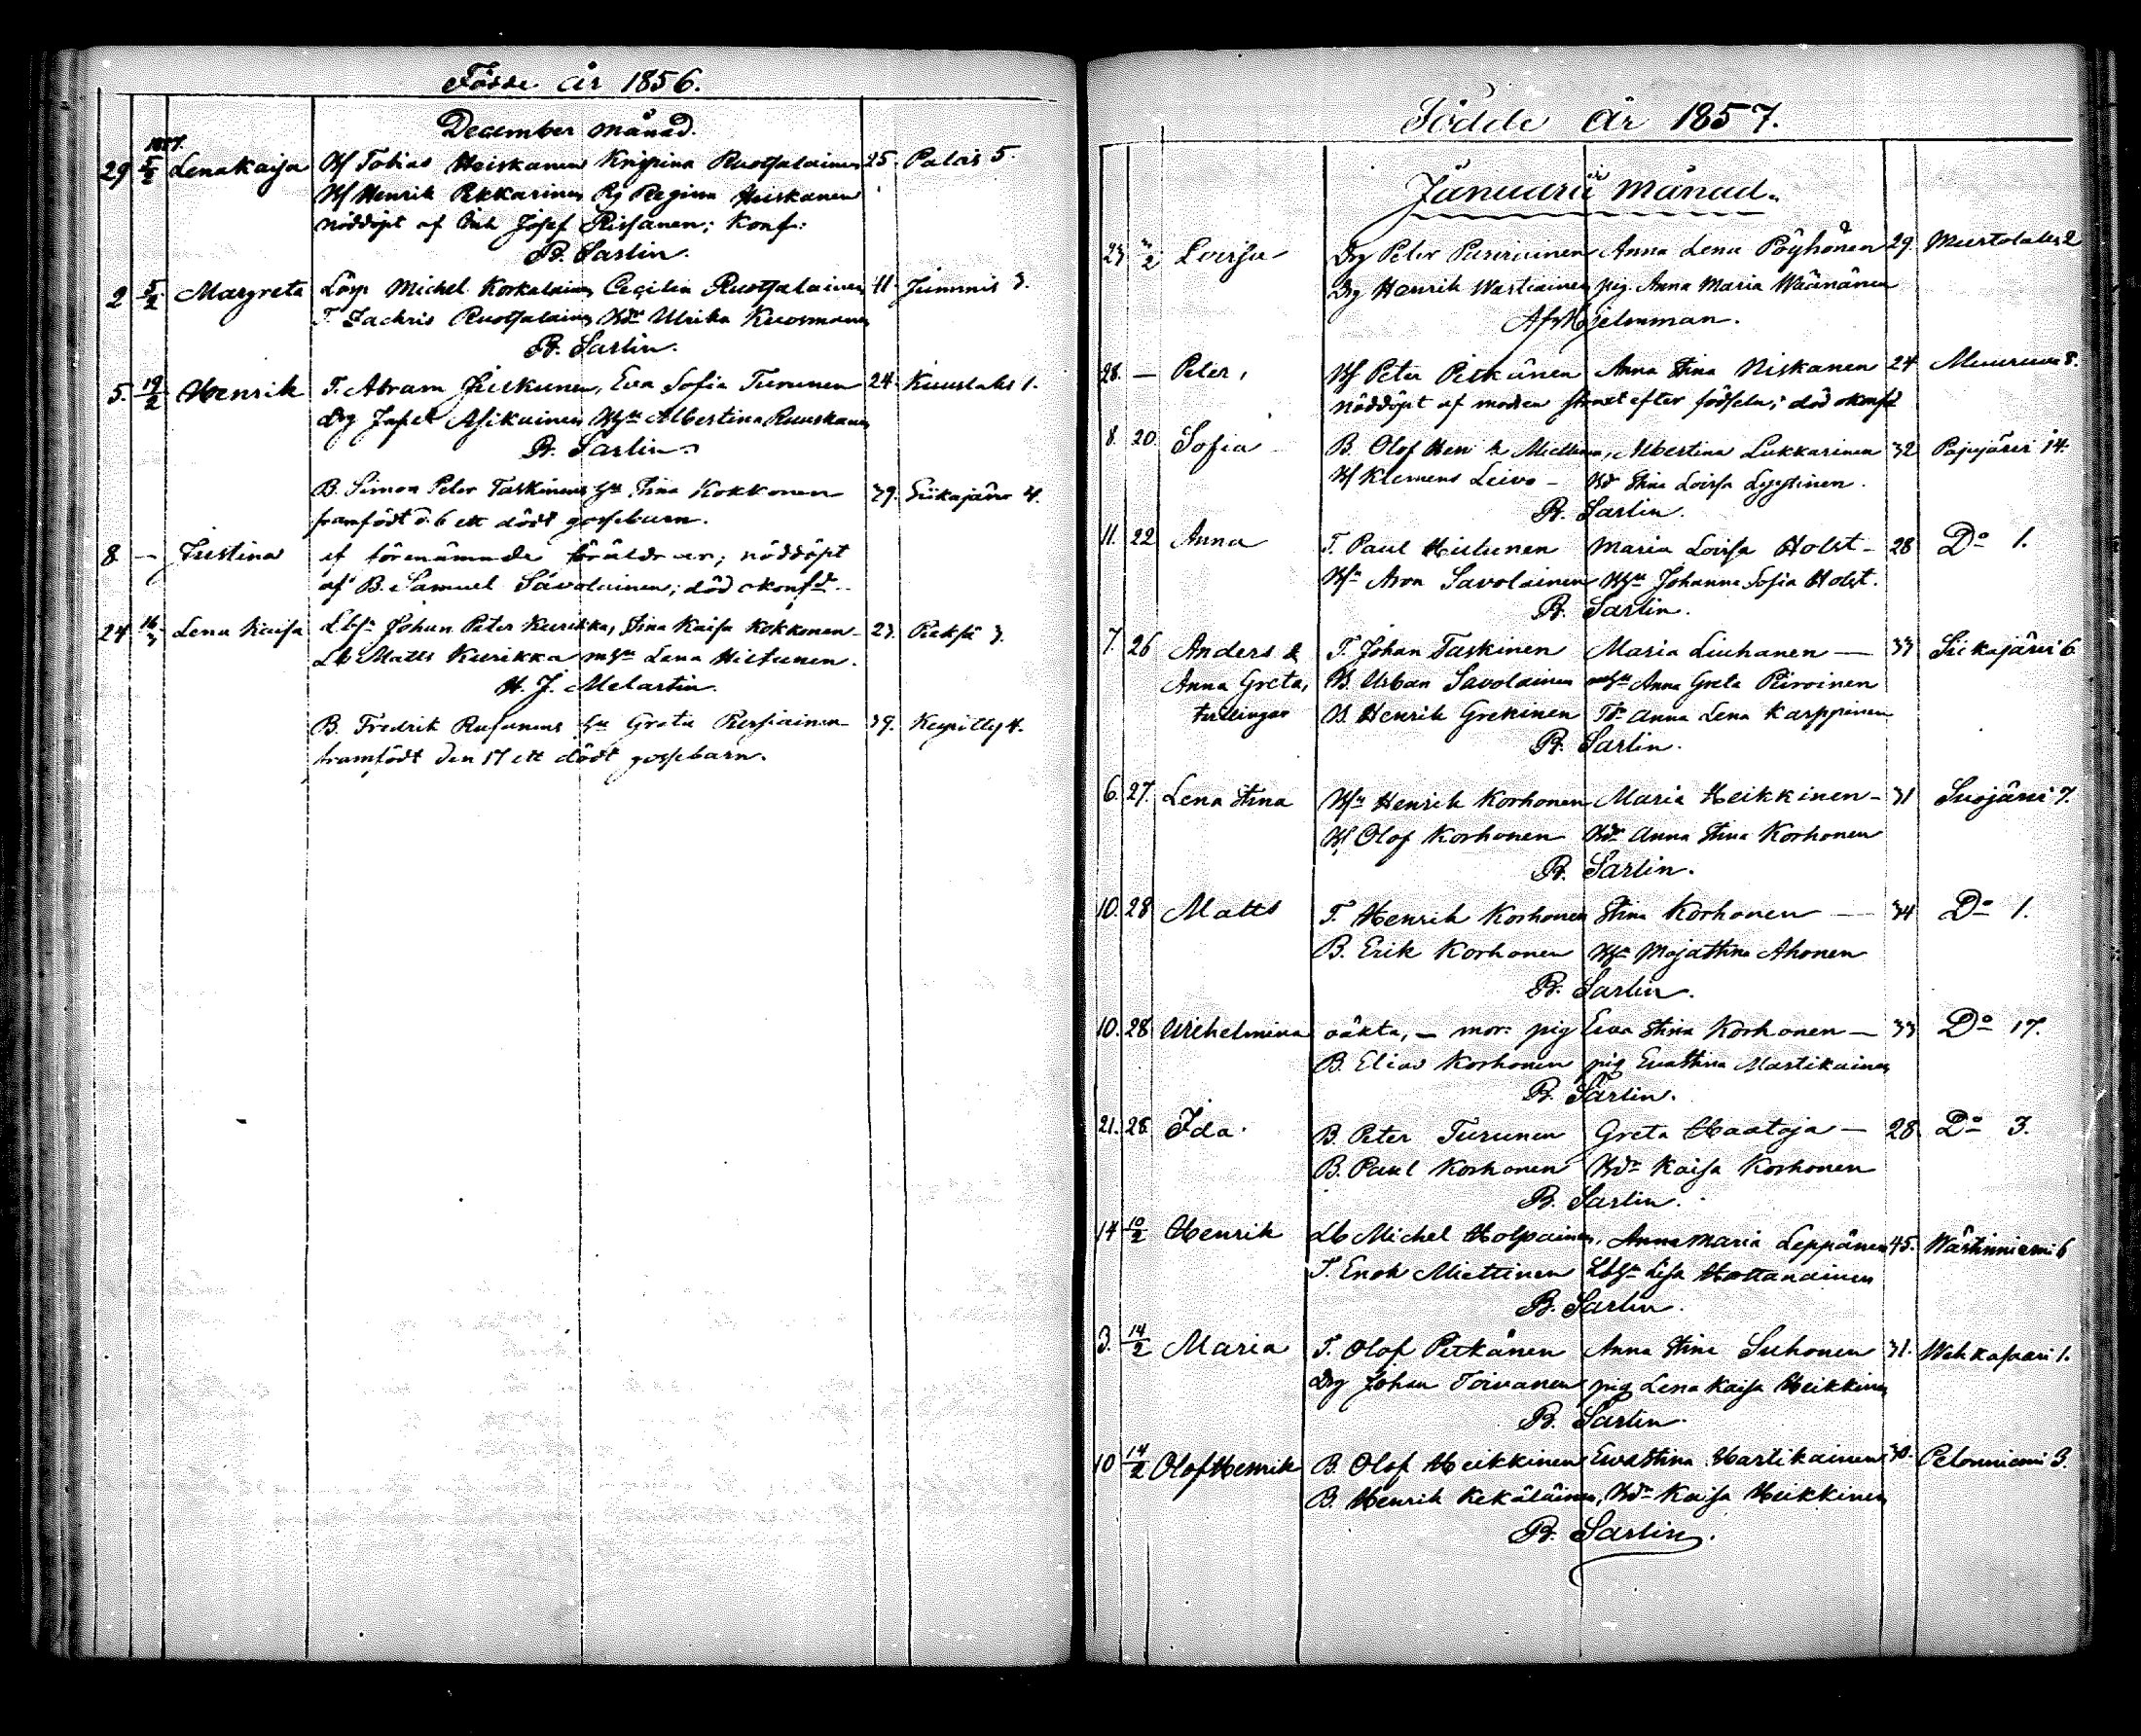 Födde år 1856.
December månad.
1857.
29 5/2 Lena Kaisa Bf Tobias Heiskanen Krispina Ruotsalainen 25. Palois 5.
Bf Henrik Pekkarinen Pg Regina Heiskanen
nöddöpt af Josef Rissanen; konf:
B. Sarlin.
2 5/2 Margreta Lösp Michel Korkalainen Cecilia Ruotsalainen 41 Juminis 3.
T. Zachris Ruotsalainen Bdr Ulrika Kuosmanen
B. Sarlin.
5. 19/2 Henrik T. Abram Jeskunen, Eva Sofia Turunen 24. Kuuslaks 1.
Drg Japet Asikainen Albertina Ruuskanen
B. Sarlin.
B. Simon Peter Taskinens hu Stina Kokkonen 39. Siikajärvi 4.
framfödt d. 6 ett dödt gossebarn.
8 — Justina af förenämnde föräldrar; nöddöpt
af B. Samuel Savolainen; död okonfd.
24 16/3 Lena Kaisa Lbsn Johan Peter Kurikka, Stina Kaisa Kokkonen 23. Pieksä 3.
Lb Matts Kurikka Lena Hiltunen.
H. J. Melartin.
B. Fredrik Rusanens hu Greta Rissiainen 39. Keyritty 4.
framfödt den 17 ett dödt gossebarn.
Födde år 1857.
Januarii månad.
23 2 Lovisa Drg Peter Parviainen Anna Lena Pöyhönen 29. Murtolaks 2
Drg Henrik Wartiainen pig. Anna Maria Wäänänen
Af Hjelmman.
28. — Peter, Bf Peter Pitkänen Anna Stina Niskanen 24 Muuruve 8.
nöddöpt af modren straxt efter födseln; död okonfd
8. 20. Sofia B. Olof Henrik Miettinen, Albertina Lukkarinen 32 Pajujärvi 14.
Bf Klemens Leivo — Bdr Stina Lovisa Lyytinen.
B. Sarlin.
11. 22 Anna T. Paul Hiltunen Maria Lovisa Holst — 28 Do 1.
Aron Savolainen Johanna Sofia Holst.
B. Sarlin.
7. 26 Anders & T. Johan Taskinen Maria Liuhanen — 33 Siikajärvi 6
Anna Greta, B. Urban Savolainen Anna Greta Piiroinen
tvillingar B. Henrik Grekinen Anna Lena Karppinen
B. Sarlin.
6. 27. Lena Stina Henrik Korhonen Maria Heikkinen — 31 Suojärvi 7.
Bf Olof Korhonen Bdr Anna Stina Korhonen
B. Sarlin.
10. 28 Matts T. Henrik Korhonen Stina Korhonen — 34 Do 1.
B. Erik Korhonen Maja Stina Ahonen
B. Sarlin.
10. 28 Wilhelmina oäkta, — mor: pig Eva Stina Korhonen — 33 Do 17.
B. Elias Korhonen pig Eva Stina Martikainen
B. Sarlin.
21. 28 Ida B. Peter Turunen Greta Haataja — 28 Do 3.
B. Paul Korhonen Bdr Kaisa Korhonen
B. Sarlin.
14 10/2 Henrik Lb Michel Holpainen, Anna Maria Leppänen 45. Wästinniemi 6
T. Enok Miettinen Lisa Hottanainen
B. Sarlin.
3. 14/2 Maria T. Olof Pitkänen Anna Stina Suhonen 31. Wehkasaari 1.
Drg Johan Toivanen pig Lena Kaisa Heikkinen
B. Sarlin.
10 14/2 Olof Henrik B. Olof Heikkinen Eva Stina Martikainen 30. Pelonniemi 3.
B. Henrik Kekäläinen, Bdr Kaisa Heikkinen
B. Sarlin.